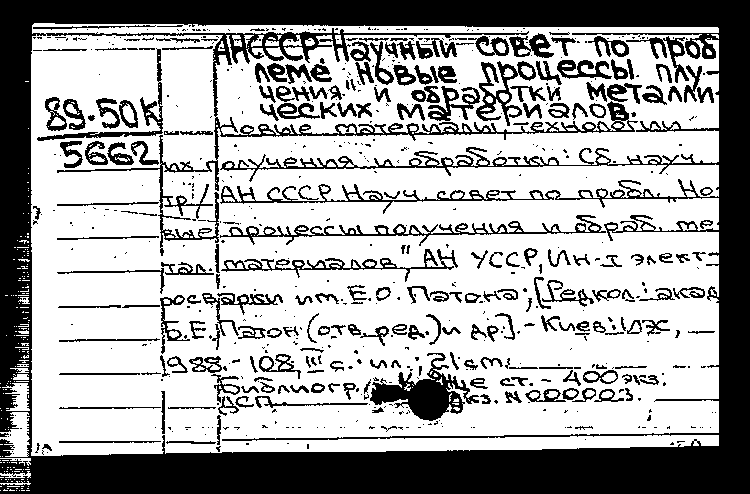 АН СССР. Научный совет по проб
леме "Новые процессы плу-
чения" и обработки металли-
ческих материалов.
89-50К
5662
Новые материалы, технологии
их получения и обработки: Сб. науч.
тр/ АН СССР. Науч. совет по пробл. „Но-
вые процессы получения и обраб. ме-
тал. материалов", АН УССР, Ин-т элект-
росварки им. Е.О. Патона; [Редкол.: акад
Б.Е. Патон (отв. ред.) и др.]. - Киев: ИЭС,
1988. - 108, III с.: ил.; 21 см.
Библиогр. в конце ст. - 400 экз.
ДСП. Экз. N 000003.